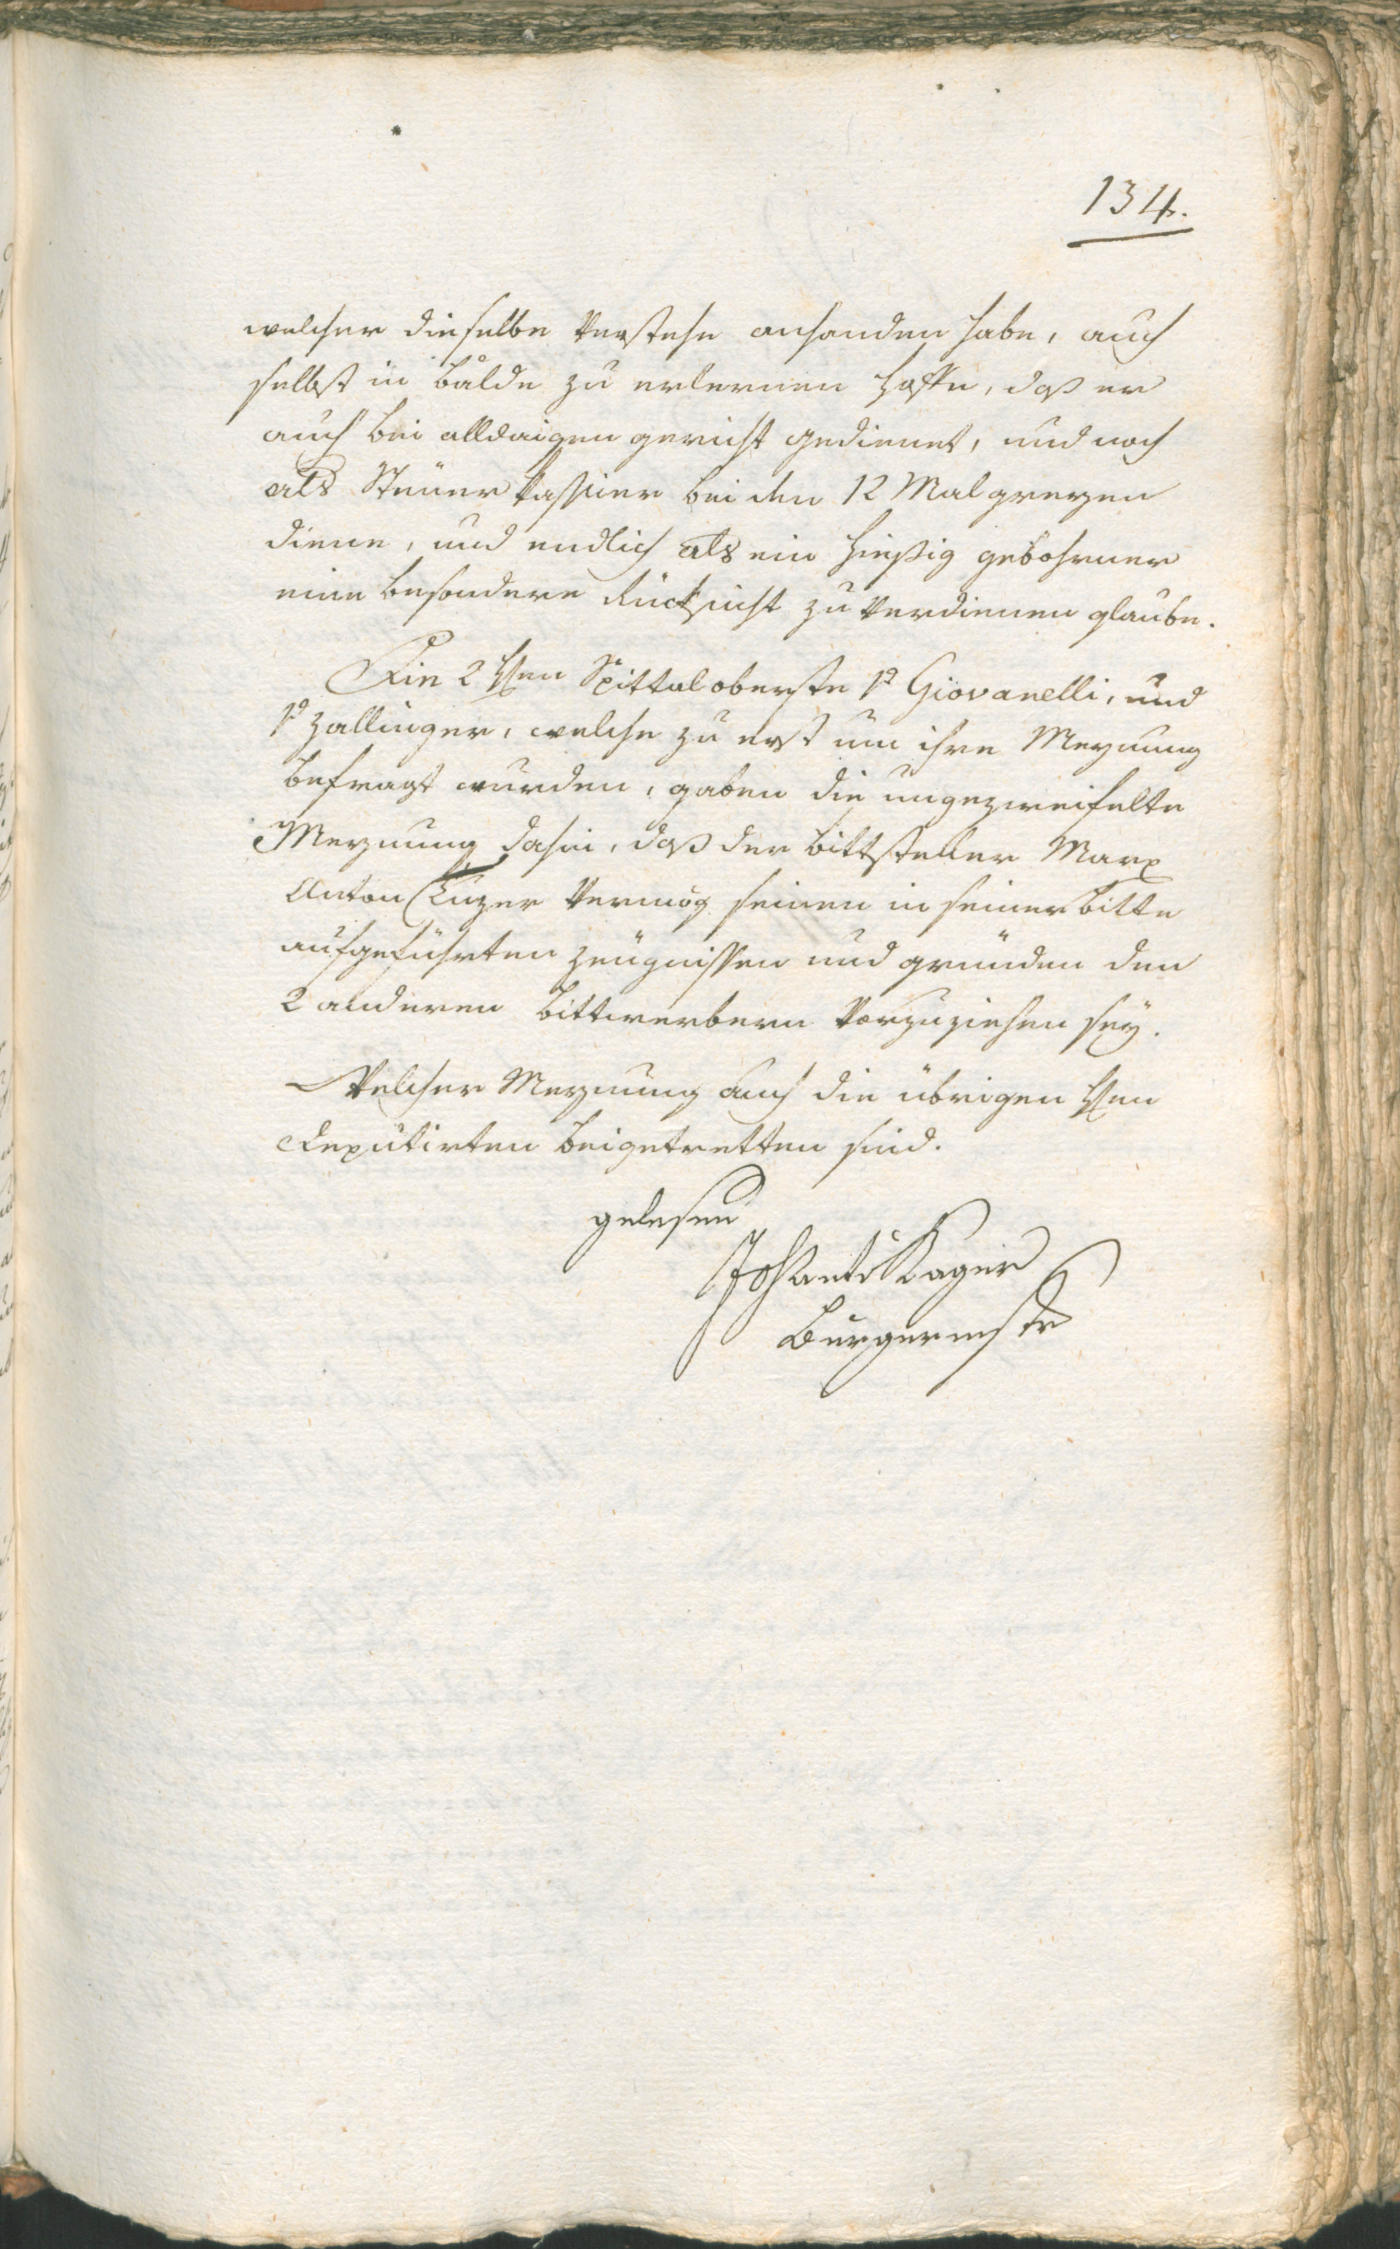 134.
welcher dieselbe verstehe anhanden habe, auch
selbst in bälde zu erlernen hoffe, daß er
auch bei alldaigen gericht gedienet, und noch
als Steuer Kassier bei den 12 Malgreyen
diene, und endlich als ein hießig gebohrner
eine besondere Rücksicht zu verdienen glaube.
Die 2 Hen Spittaloberste Pd Giovanelli, und
Pd Zallinger, welche zu erst um ihre Meynung
befragt wurden, gaben die ungezweifelte
Meynung dahin, daß der bittsteller Marx
Anton vermög seinen in seiner bitte
aufgeführten zeugnissen und gründen den
2 anderen bittwerbern vorzuziehen sey.
Welcher Meynung auch die übrigen Hen
Deputirten beigetretten sind.
gelesen
Joh Anti Kager
Burgermstr